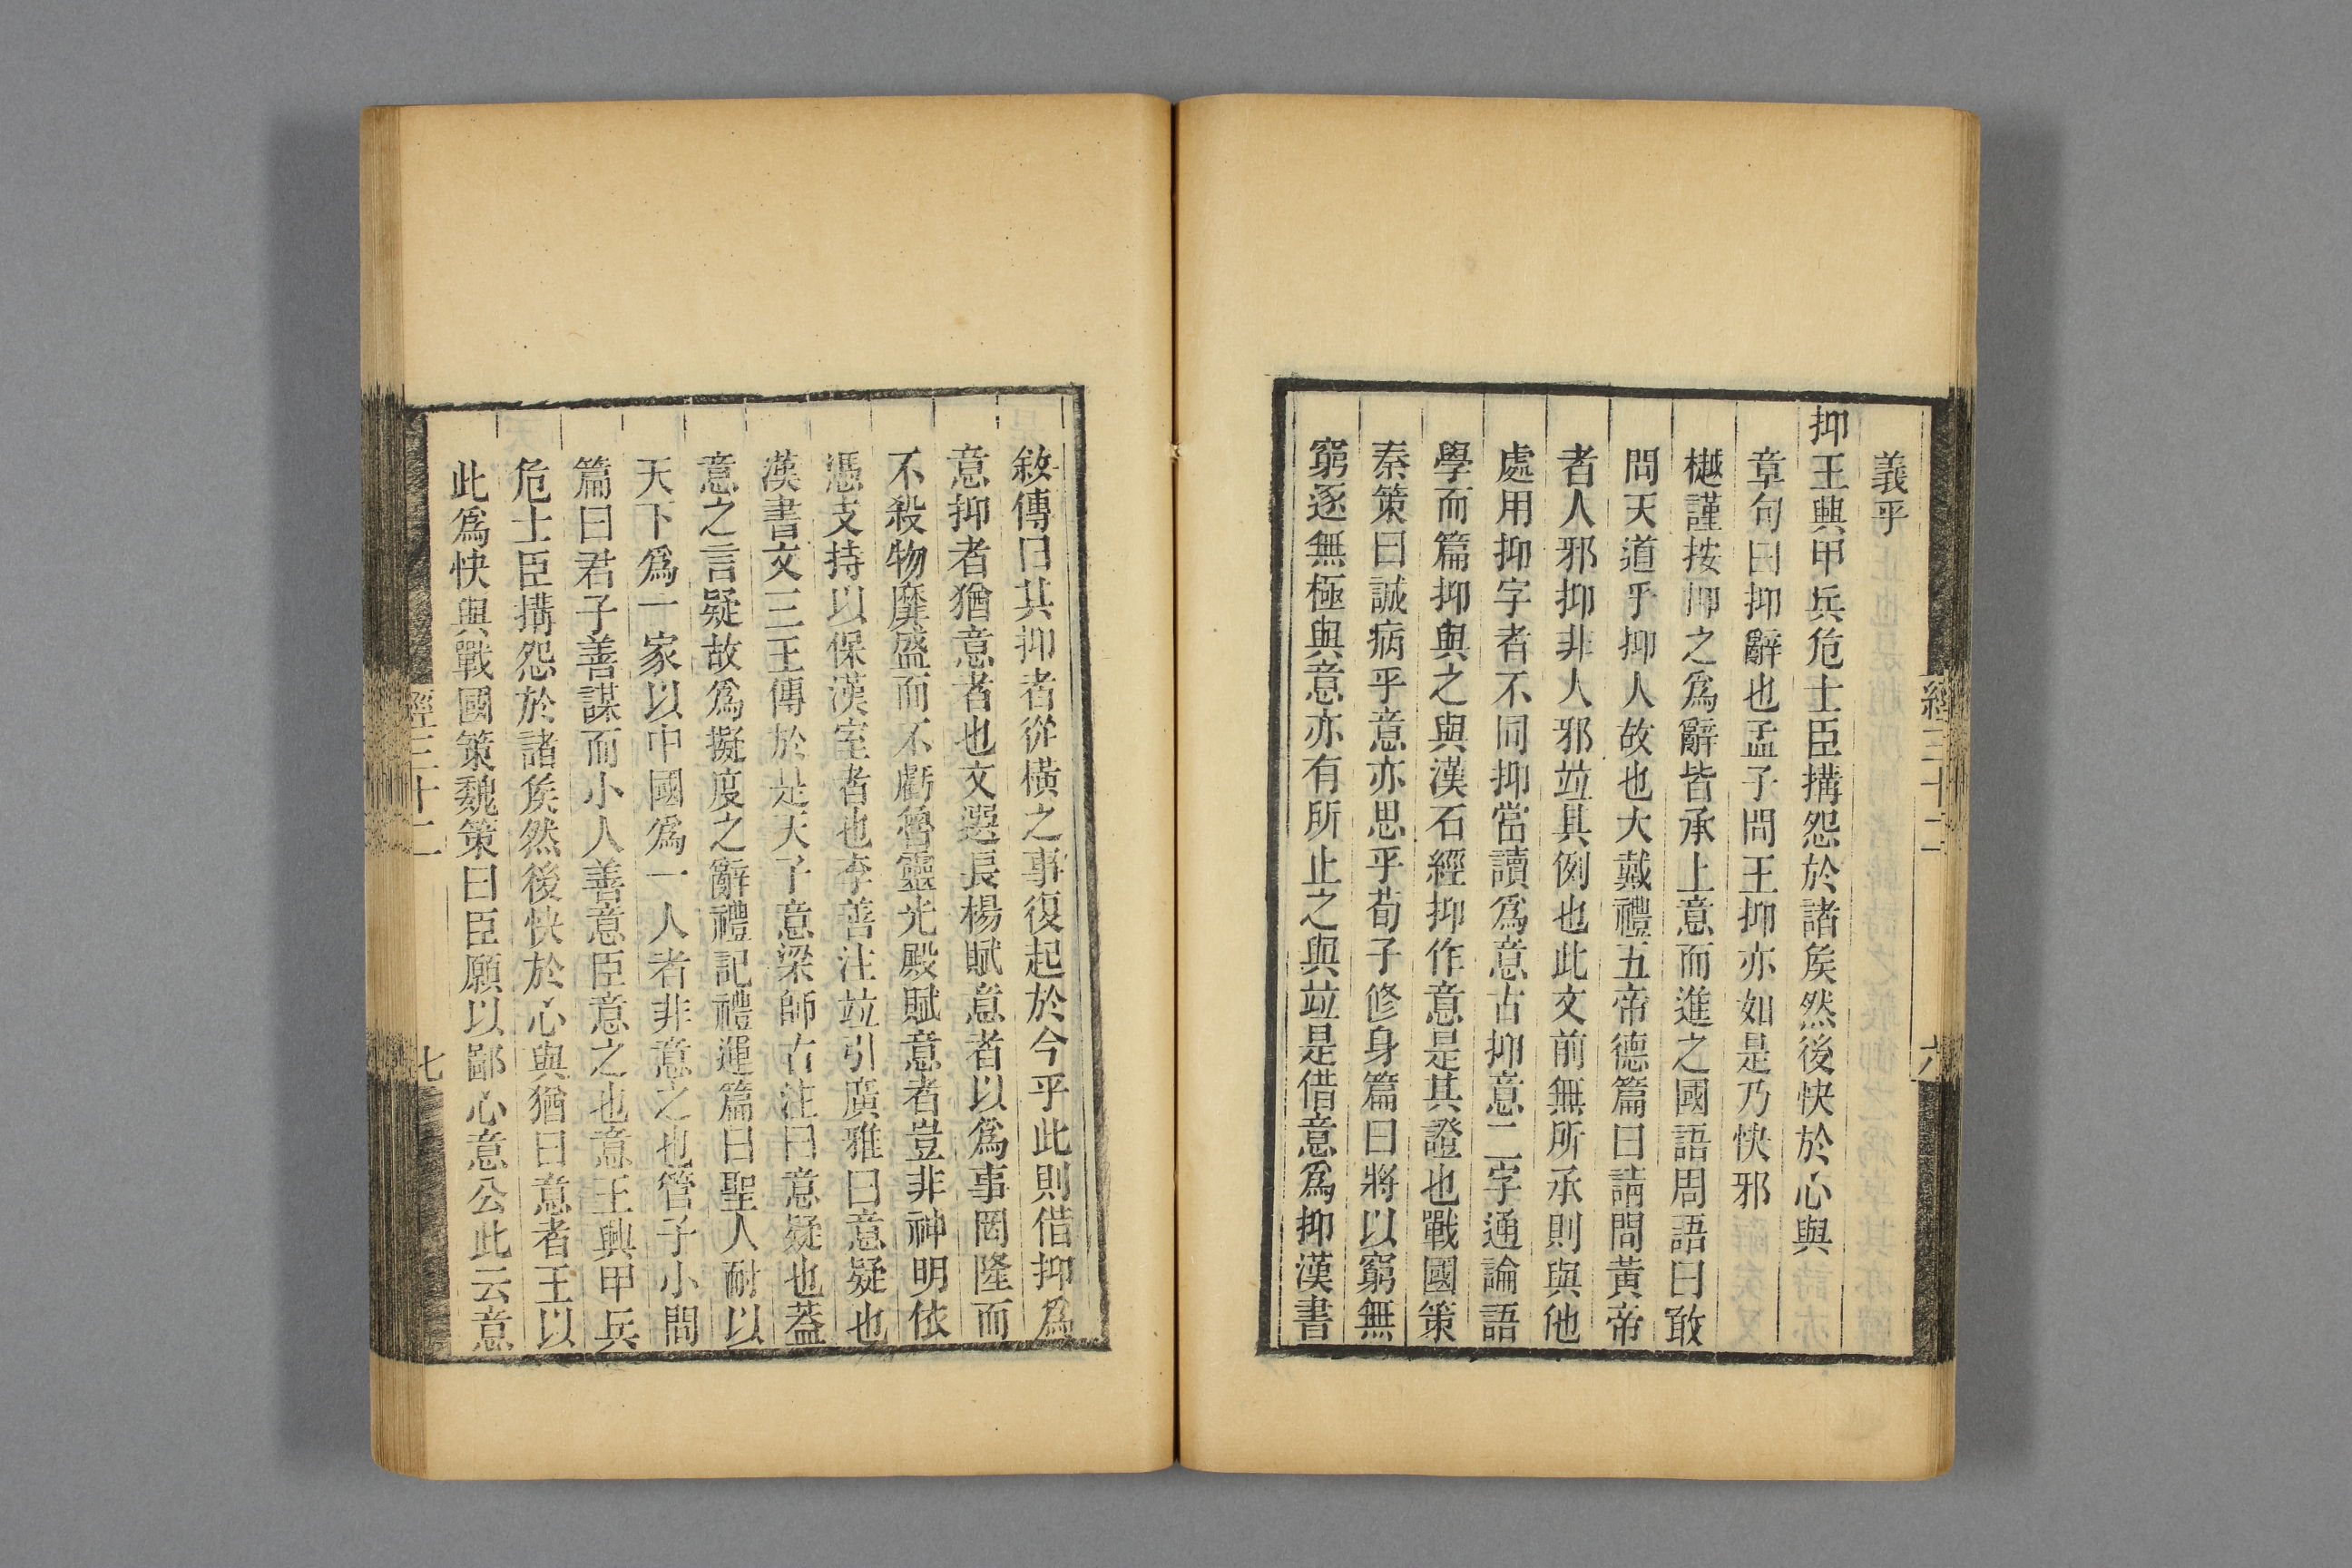 義乎
抑王興甲兵危士臣搆怨於諸矦然後快於心與
章句曰抑辭也孟子問王抑亦如是乃快邪
樾謹按抑之爲辭皆承上意而進之國語周語曰敢
問天道乎抑人故也大戴禮五帝德篇曰請問黃帝
者人邪抑非人邪竝其例也此文前無所承則與他
處用抑字者不同抑當讀爲意古抑意二字通論語
學而篇抑與之與漢石經抑作意是其證也戰國策
秦策曰誠病乎意亦思乎荀子修身篇曰將以窮無
窮逐無極與意亦有所止之與竝是借意爲抑漢書
經三十二
六
敘傳曰其抑者從橫之事復起於今乎此則借抑爲
意抑者猶意者也文選長楊賦意者以爲事罔隆而
不殺物靡盛而不虧魯靈光殿賦意者豈非神明依
憑支持以保漢室者也李善注竝引廣雅曰意疑也
漢書文三王傳於是天子意梁師古注曰意疑也葢
意之言疑故爲擬度之辭禮記禮運篇曰聖人耐以
天下爲一家以中國爲一人者非意之也管子小問
篇曰君子善謀而小人善意臣意之也意王興甲兵
危士臣搆怨於諸矦然後快於心與猶曰意者王以
此爲快與戰國策魏策曰臣願以鄙心意公此云意
經三十二
七